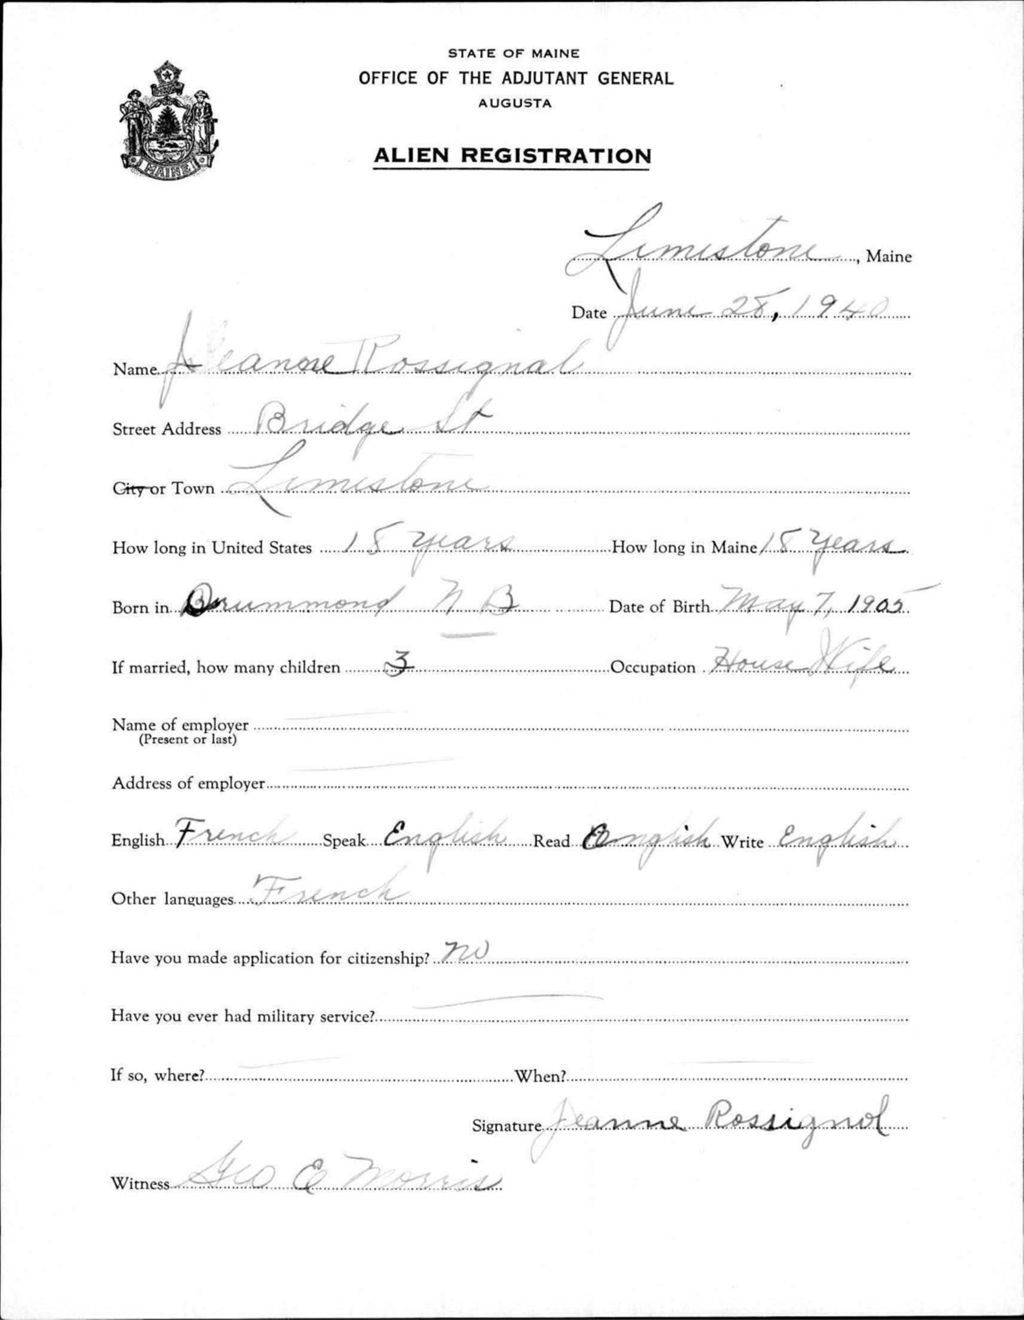 STATE OF MAINE
OFFICE OF THE ADJUTANT GENERAL
AUGUSTA
ALIEN REGISTRATION
MAINE
Limestone, Maine
Date June 28, 1940
Name Jeanne Rossignal
Street Address Bridge St
City or Town Limestone
How long in United States 18 years How long in Maine 18 years
Born in Drummond N B Date of Birth May 7, 1905
If married, how many children 3 Occupation House Wife
Name of employer
(Present or last)
Address of employer
English French Speak English Read English Write English
Other languages French
Have you made application for citizenship? no
Have you ever had military service?
If so, where? When?
Signature Jeanne Rossignol
Witness Geo E Morris